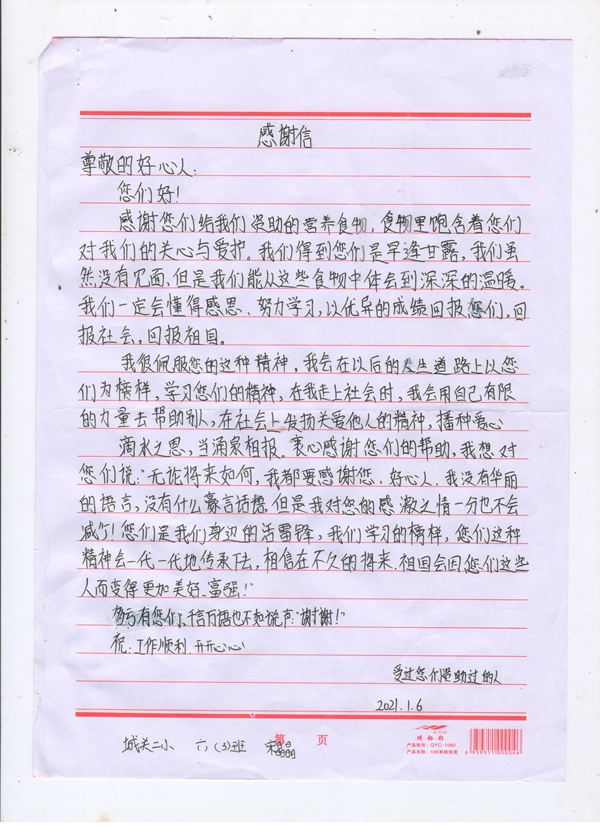 感谢信
尊敬的好心人:
您们好!
感谢您们给我们资助的营养食物,食物里饱含着您们
对我们的关心与爱护。我们得到您们是旱逢甘露,我们虽
然没有见面,但是我们能从这些食物中体会到深深的温暖。
我们一定会懂得感恩、努力学习,以优异的成绩回报您们,回
报社会,回报祖国。
我很佩服您的这种精神,我会在以后的人生道路上以您
们为榜样,学习您们的精神,在我走上社会时,我会用自己有限
的力量去帮助别人,在社会上发扬关爱他人的精神,播种爱心
滴水之恩,当涌泉相报。衷心感谢您们的帮助,我想对
您们说:"无论将来如何,我都要感谢您、好心人、我没有华丽
的语言,没有什么豪言话语,但是我对您的感激之情一分也不会
减少!您们是我们身边的活雷锋,我们学习的榜样,您们这种
精神会一代一代地传承下去,相信在不久的将来,祖国会因您们这些
人而变得更加美好、富强!"
多亏有您们、千言万语也不如说声:"谢谢!"
祝:工作顺利、开开心心
受过您们资助过的人
2021.1.6
城关二小 六(3)班
第 页
琦铂彩
产品型号:QYC-1080
产品名称:16K单线信纸